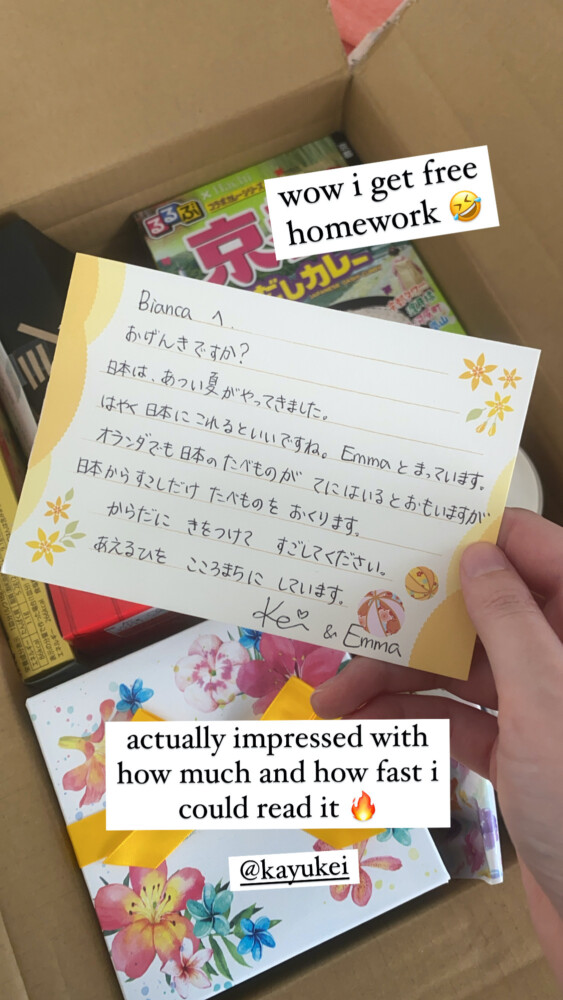 wow i get free
homework 🤣
るるぶ
京
だしカレー
Bianca へ、
おげんきですか?
日本は、あつい夏がやってきました。
はやく日本にこれるといいですね。Emmaとまっています。
オランダでも日本のたべものが てにはいるとおもいますが
日本からすこしだけ たべものを おくります。
からだに きをつけて すごしてください。
あえるひを こころまちに しています。
Kei
& Emma
actually impressed with
how much and how fast i
could read it 🔥
@kayukei